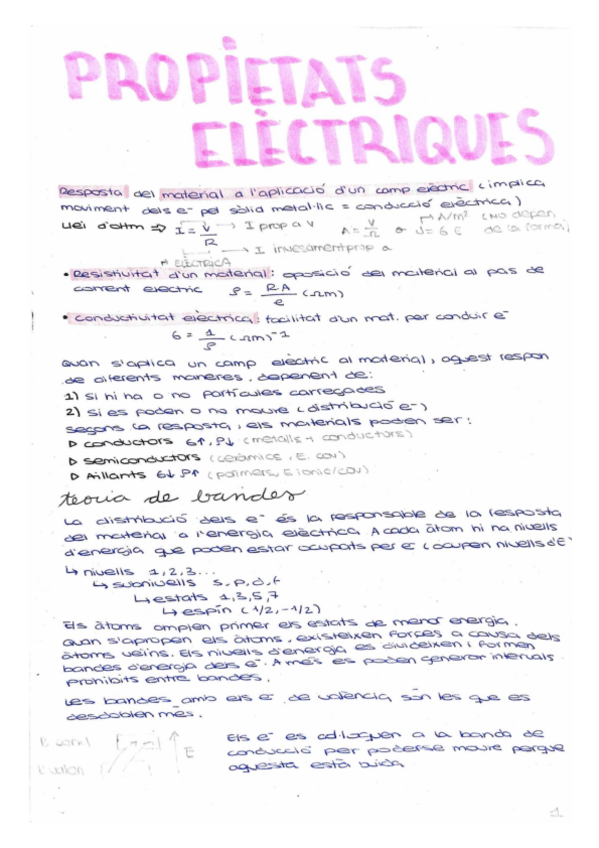 PROPIETATS
ELÈCTRIQUES
Resposta del material a l'aplicació d'un camp elèctric (implica
moviment dels e- pel sòlid metal·lic = conducció elèctrica)
Llei d'ohm ⇒ I = V/R → I prop a V A = V/Ω o J = σ E → A/m² (NO depen de la forma)
→ I inversament prop a R ELÈCTRICA
• Resistivitat d'un material: oposició del material al pas de
corrent electric ρ = R·A/e (Ωm)
• Conductivitat elèctrica: facilitat d'un mat. per conduir e-
σ = 1/ρ (Ωm)-1
Quan s'aplica un camp elèctric al material, aquest respon
de diferents maneres, depenent de:
1) Si hi ha o no partícules carregades
2) Si es poden o no moure (distribució e-)
Segons la resposta, els materials poden ser:
▷ Conductors σ↑, ρ↓ (metalls + conductors)
▷ Semiconductors (ceràmics, E. cov)
▷ Aïllants σ↓ ρ↑ (polímers, E ionic/cov)
teoria de bandes
La distribució dels e- és la responsable de la resposta
del material a l'energia elèctrica. A cada àtom hi ha nivells
d'energia que poden estar ocupats per e- (ocupen nivells d'E
↳ nivells 1,2,3...
↳ subnivells s,p,d,f
↳ estats 1,3,5,7
↳ espín (1/2,-1/2)
Els àtoms omplen primer els estats de menor energia.
Quan s'apropen els àtoms, existeixen forces a causa dels
àtoms veïns. Els nivells d'energia es divideixen i formen
bandes d'energia dels e-. A més es poden generar intervals
prohibits entre bandes.
Les bandes amb els e- de valència són les que es
desdoblen més.
E
Els e- es col·loquen a la banda de
conducció per poderse moure perque
aquesta està buida
1